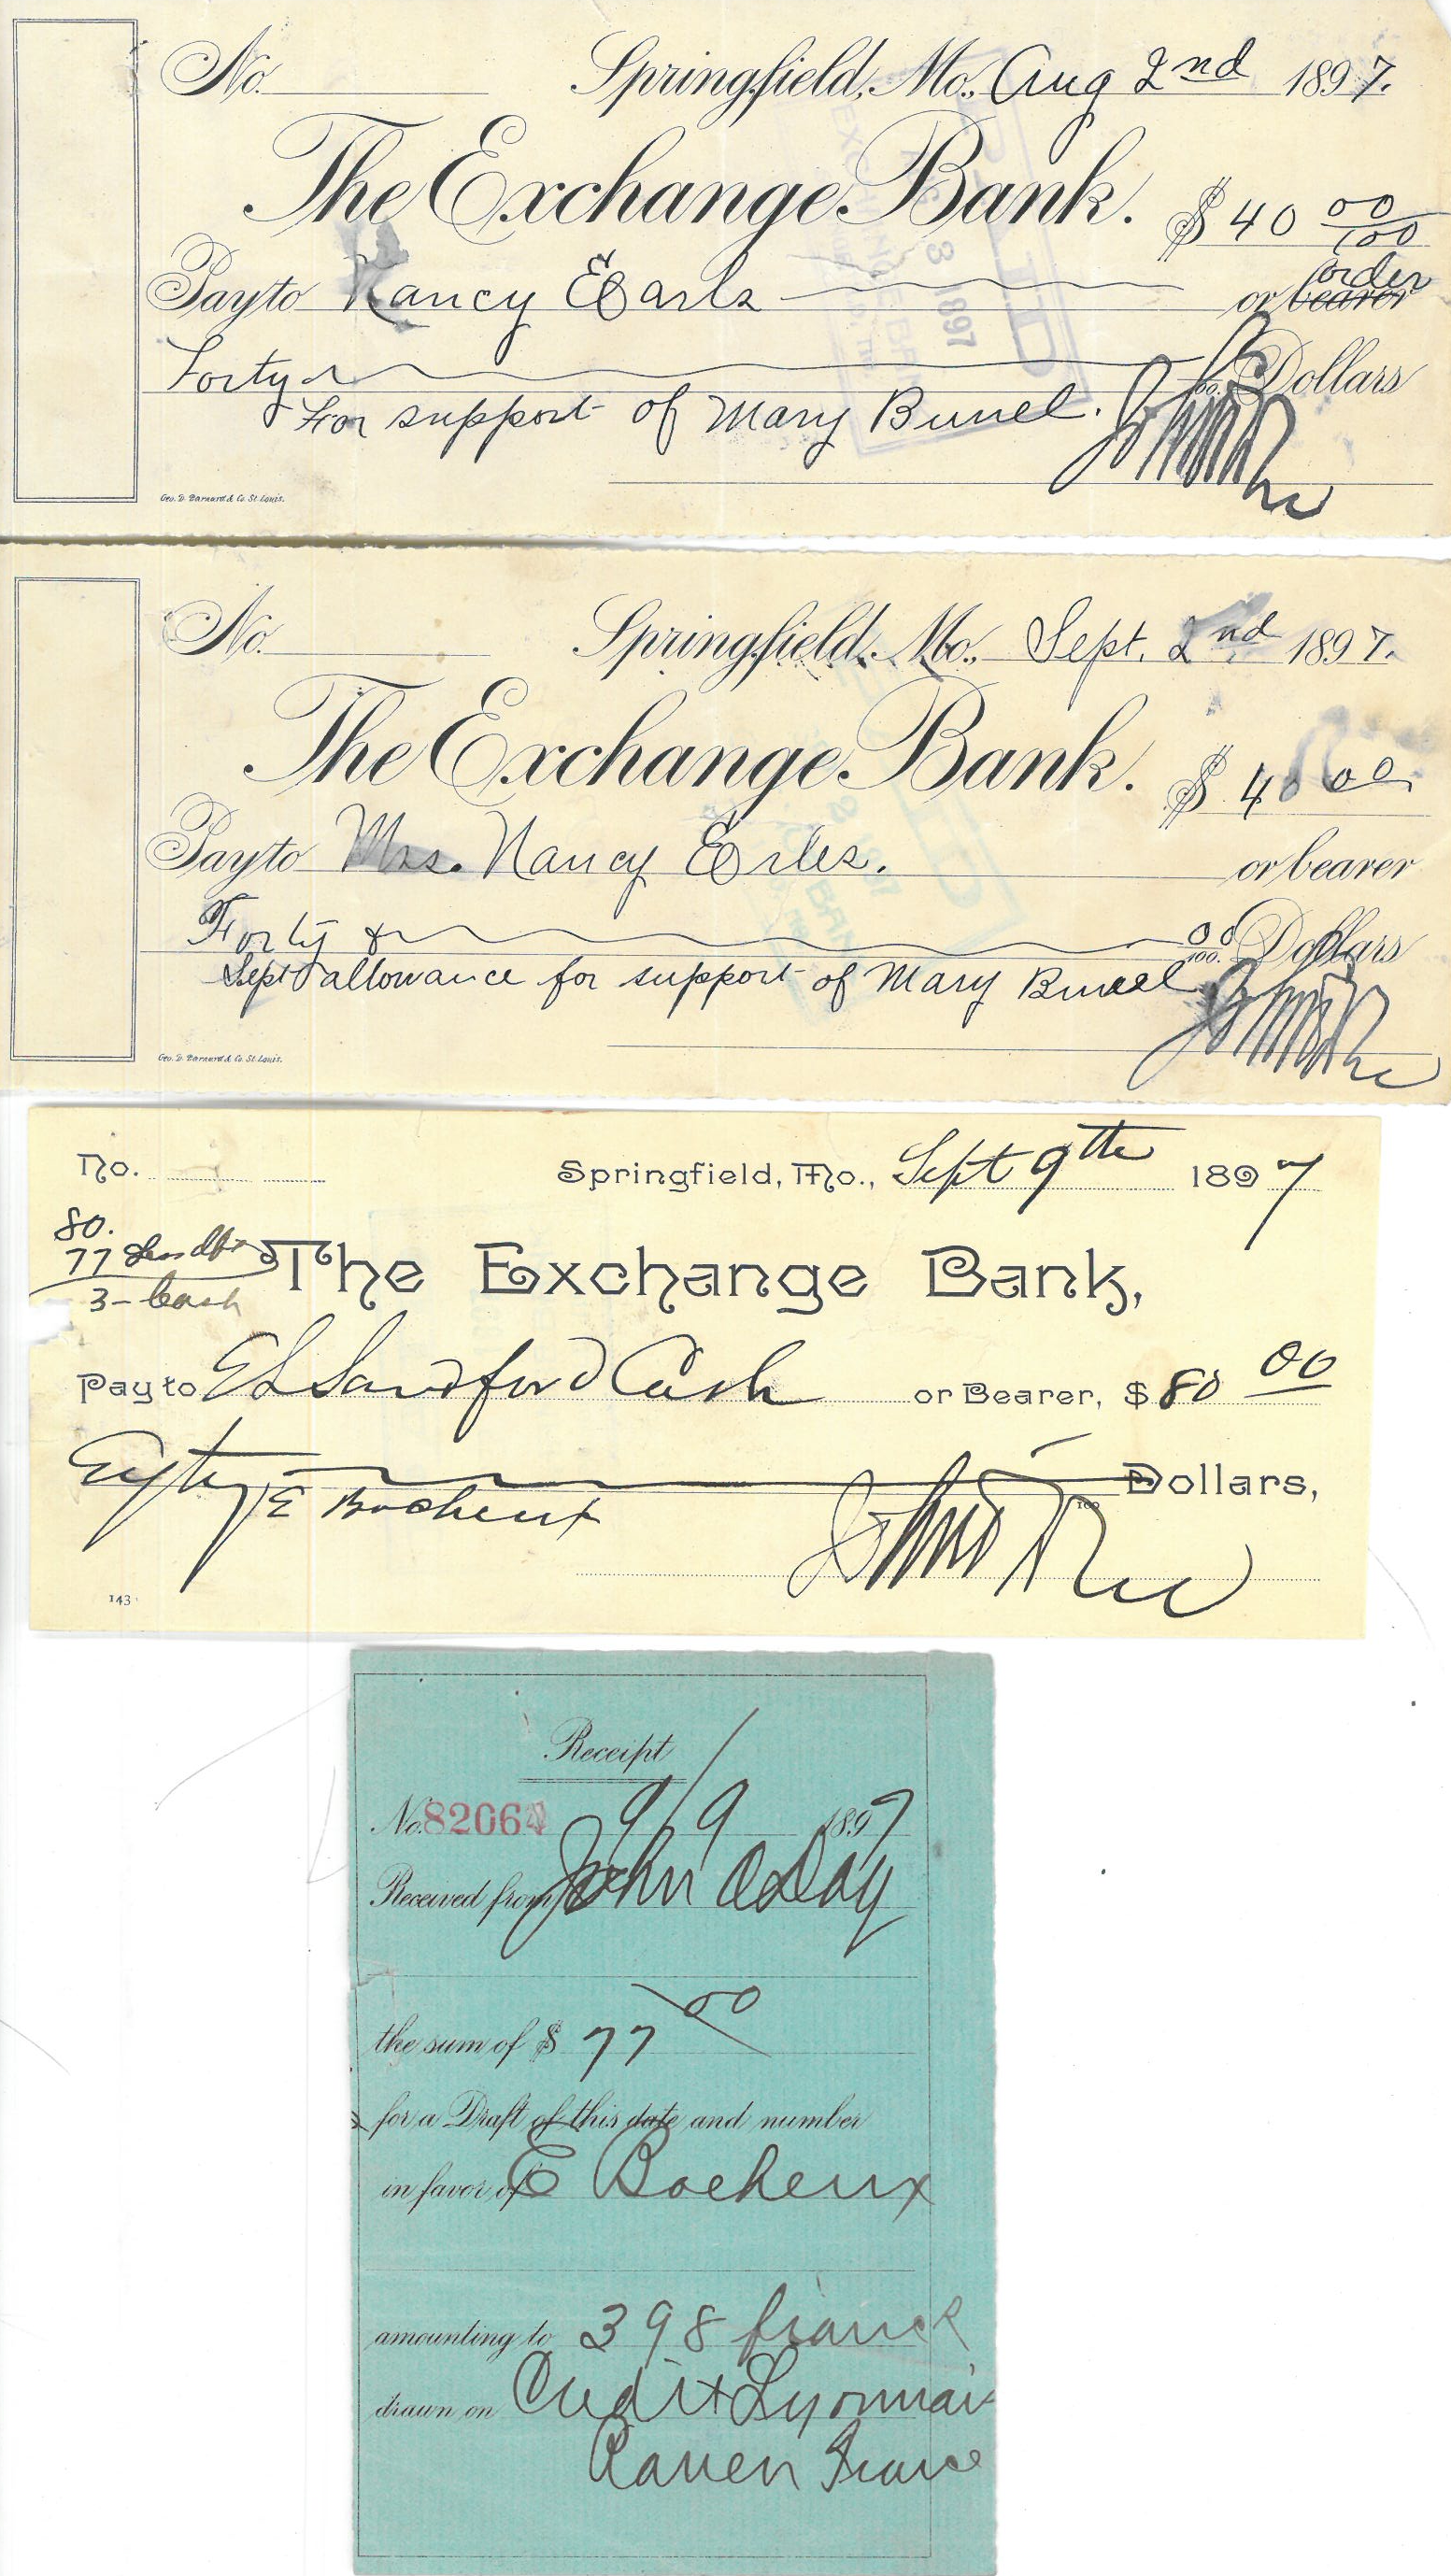 No. Springfield, Mo., Aug 2nd 1897.
The Exchange Bank. $40 00/100
Pay to Nancy Earls or bearer order
Forty Dollars
For support of Mary Bunel.
Geo. D. Barnard & Co. St. Louis.
No. Springfield, Mo., Sept. 2nd 1897.
The Exchange Bank. $40 00
Pay to Mrs. Nancy Erles. or bearer
Forty & 00/100. Dollars
Sept allowance for support of Mary Bunel
Geo. D. Barnard & Co. St. Louis.
No. Springfield, Mo., Sept 9th 1897
80.
77
3 - Cash
The Exchange Bank,
Pay to E L Sandford Cash or Bearer, $80 00
Eighty Dollars,
E Bocheux
143
Receipt
No. 82064 9/9 1897
Received from John O Day
the sum of $ 77 00
for a Draft of this date and number
in favor of E Bocheux
amounting to 398 francs
drawn on Credit Lyonnais
Rouen France